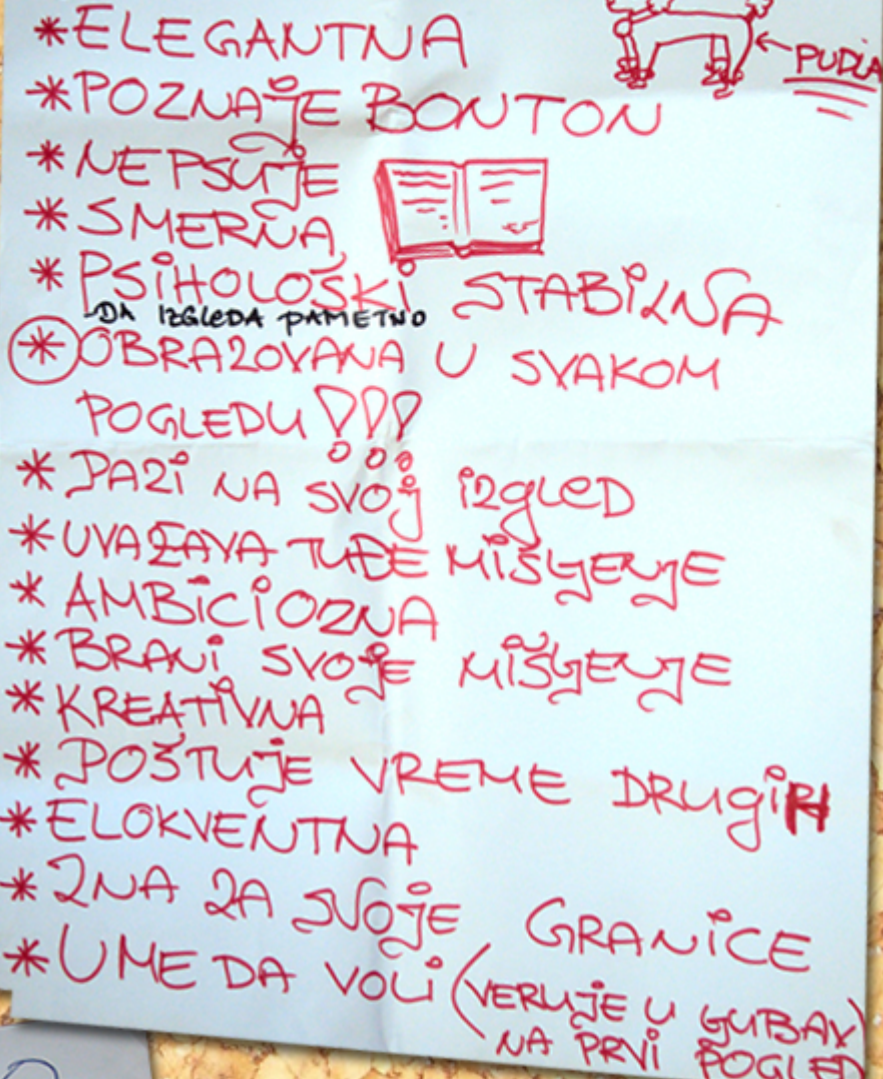 * ELEGANTNA
PUDLA
* POZNAJE BONTON
* NE PSUJE
* SMERNA
* PSIHOLOŠKI STABILNA
DA IZGLEDA PAMETNO
* OBRAZOVANA U SVAKOM
POGLEDU !!!
* PAZI NA SVOJ IZGLED
* UVAŽAVA TUĐE MIŠLJENJE
* AMBICIOZNA
* BRANI SVOJE MIŠLJENJE
* KREATIVNA
* POŠTUJE VREME DRUGIH
* ELOKVENTNA
* ZNA ZA SVOJE GRANICE
* UME DA VOLI (VERUJE U LJUBAV
NA PRVI POGLED)